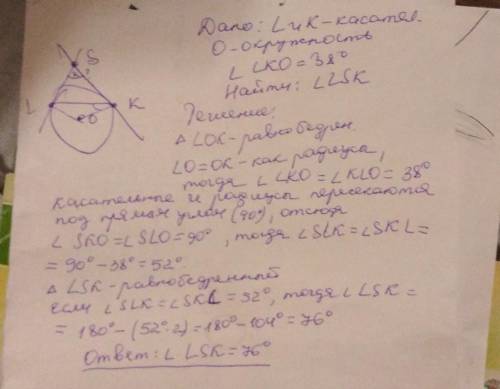 S
?
L
K
O
Дано: L и K - касател.
O - окружность
∠ LKO = 38°
Найти: ∠LSK
Решение:
△ LOK - равнобедрен.
LO = OK - как радиусы,
тогда ∠ LKO = ∠ KLO = 38°
касательные и радиусы пересекаются
под прямым углом (90°), отсюда
∠ SKO = ∠SLO = 90°, тогда ∠SLK = ∠SKL =
= 90° - 38° = 52°
△ LSK - равнобедренный
если ∠SLK = ∠SKL = 52°, тогда ∠ LSK =
= 180° - (52°·2) = 180° - 104° = 76°
Ответ: ∠ LSK = 76°